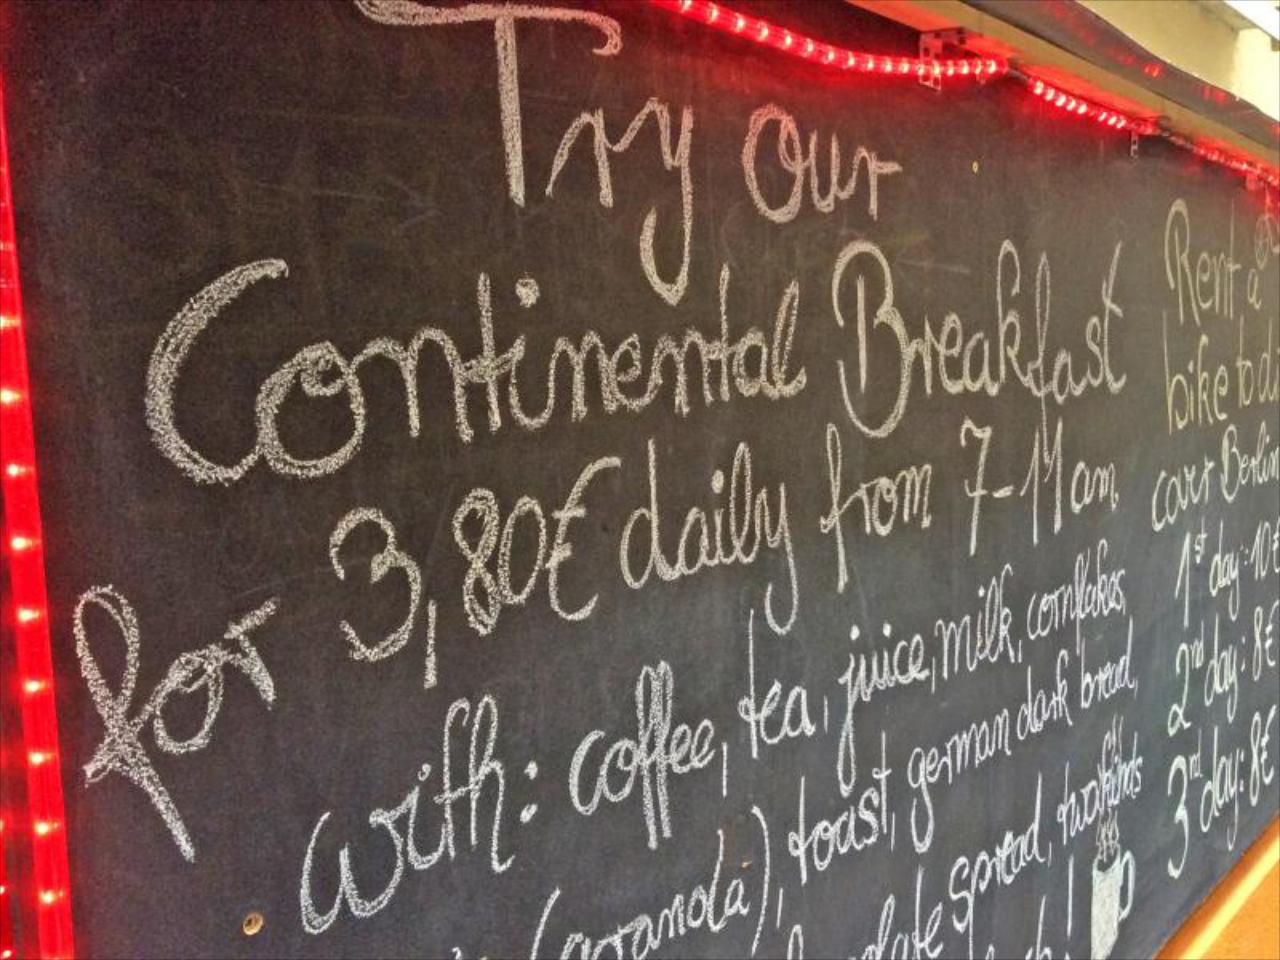 Try our
Continental Breakfast
for 3,80€ daily from 7-11 am
with: coffee, tea, juice, milk, cornflakes,
(granola), toast, german dark bread,
spread, two kinds
!
Rent a
bike to
Berlin
1st day: 10€
2nd day: 8€
3nd day: 8€